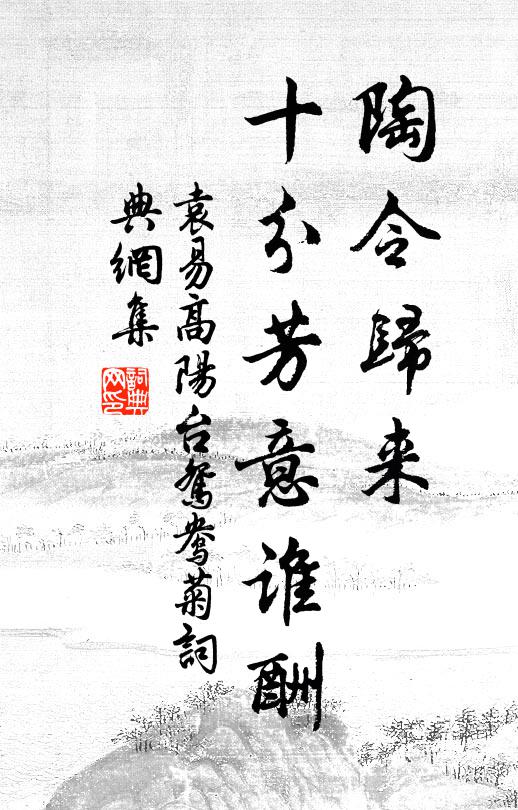 陶令歸来
十分芳意誰酬
袁易高陽台鴛鴦菊詞
典網集
詞典
网印